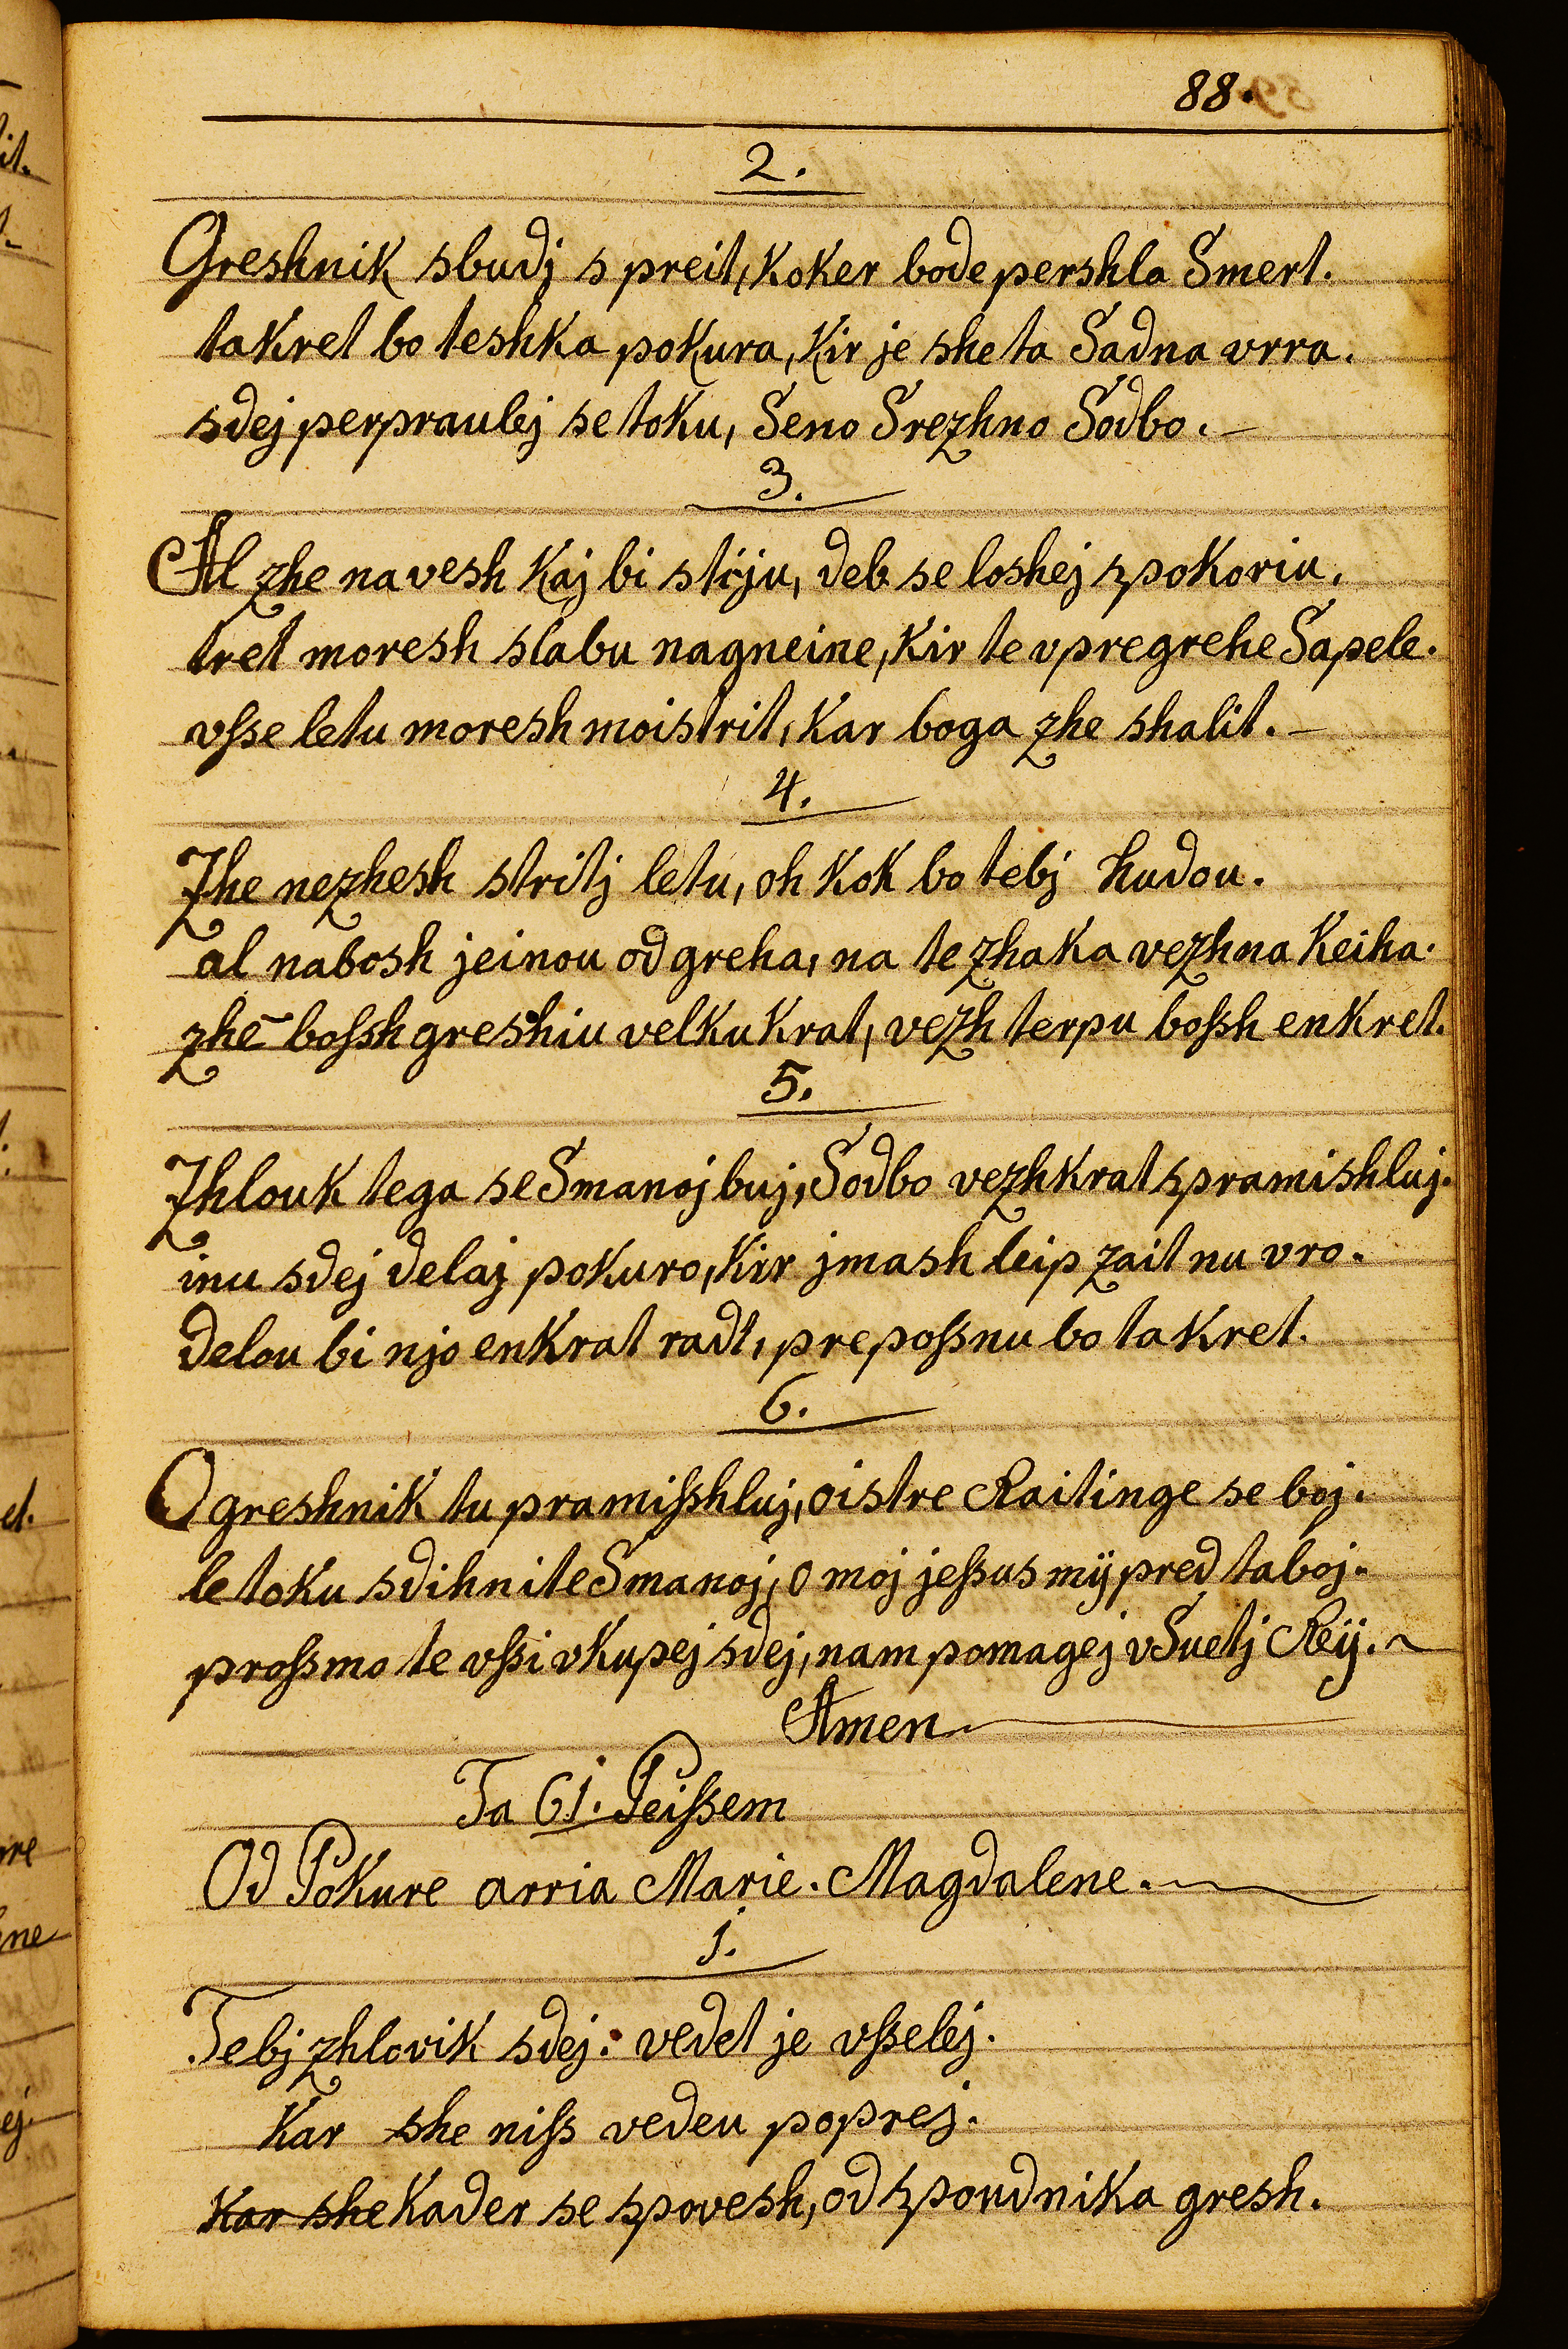 88.
2.
Greshnik sbudj s preit, koker bode pershla Smert.
takret bo teshka pokura, kir je she ta Sadna vrra.
sdej perpraulej se toku, Seno Srezhno Sodbo.
3.
Al zhe na vesh kaj bi strju, deb se loshej spokoriu.
tret moresh slabu nagneine, kir te v pregrehe Sapele.
vsse letu moresh moistrit, kar boga zhe shalit.
4.
Zhe nezhesh stritj letu, oh kok bo tebj hudou.
al nabosh jeinou od greha, na te zhaka vezhna keiha.
zhe bossh greshiu velku krat, vezh terpu bossh enkret.
5.
Zhlouk tega se Smanoj buj, Sodbo vezhkrat spramishluj.
inu sdej delaj pokuro, kirr jmash leip zait nu vro.
delou bi njo enkrat radt, prepossnu bo takret.
6.
O greshnik tu pramisshluj, oistre Raitinge se boj.
le toku sdihnite Smanoj, o moj jessus mÿ pred taboj.
prossmo te vssi vkupej sdej, nam pomagej v Suetj Reÿ.
Amen
Ta 61. Peissem
Od Pokure arria Marie. Magdalene.
1.
Tebj zhlovik sdej: vedet je vsselej.
Kar she niss vedeu poprej.
Kar she Kader se spovesh, od spoudnika gresh.